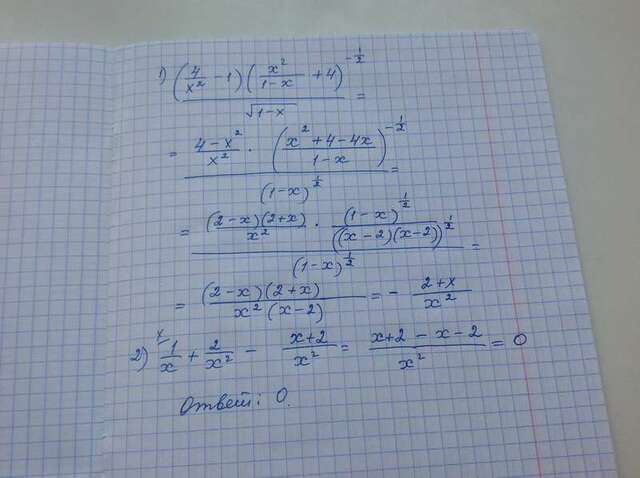 1) ((4/x² - 1)(x²/(1-x) + 4)^(-1/2))/√(1-x) =
= ((4-x²)/x² · ((x²+4-4x)/(1-x))^(-1/2))/(1-x)^(1/2) =
= ((2-x)(2+x)/x² · (1-x)^(1/2)/((x-2)(x-2))^(1/2))/(1-x)^(1/2) =
= (2-x)(2+x)/(x²(x-2)) = - (2+x)/x²
2) x/ 1/x + 2/x² - (x+2)/x² = (x+2-x-2)/x² = 0
Ответ: 0.